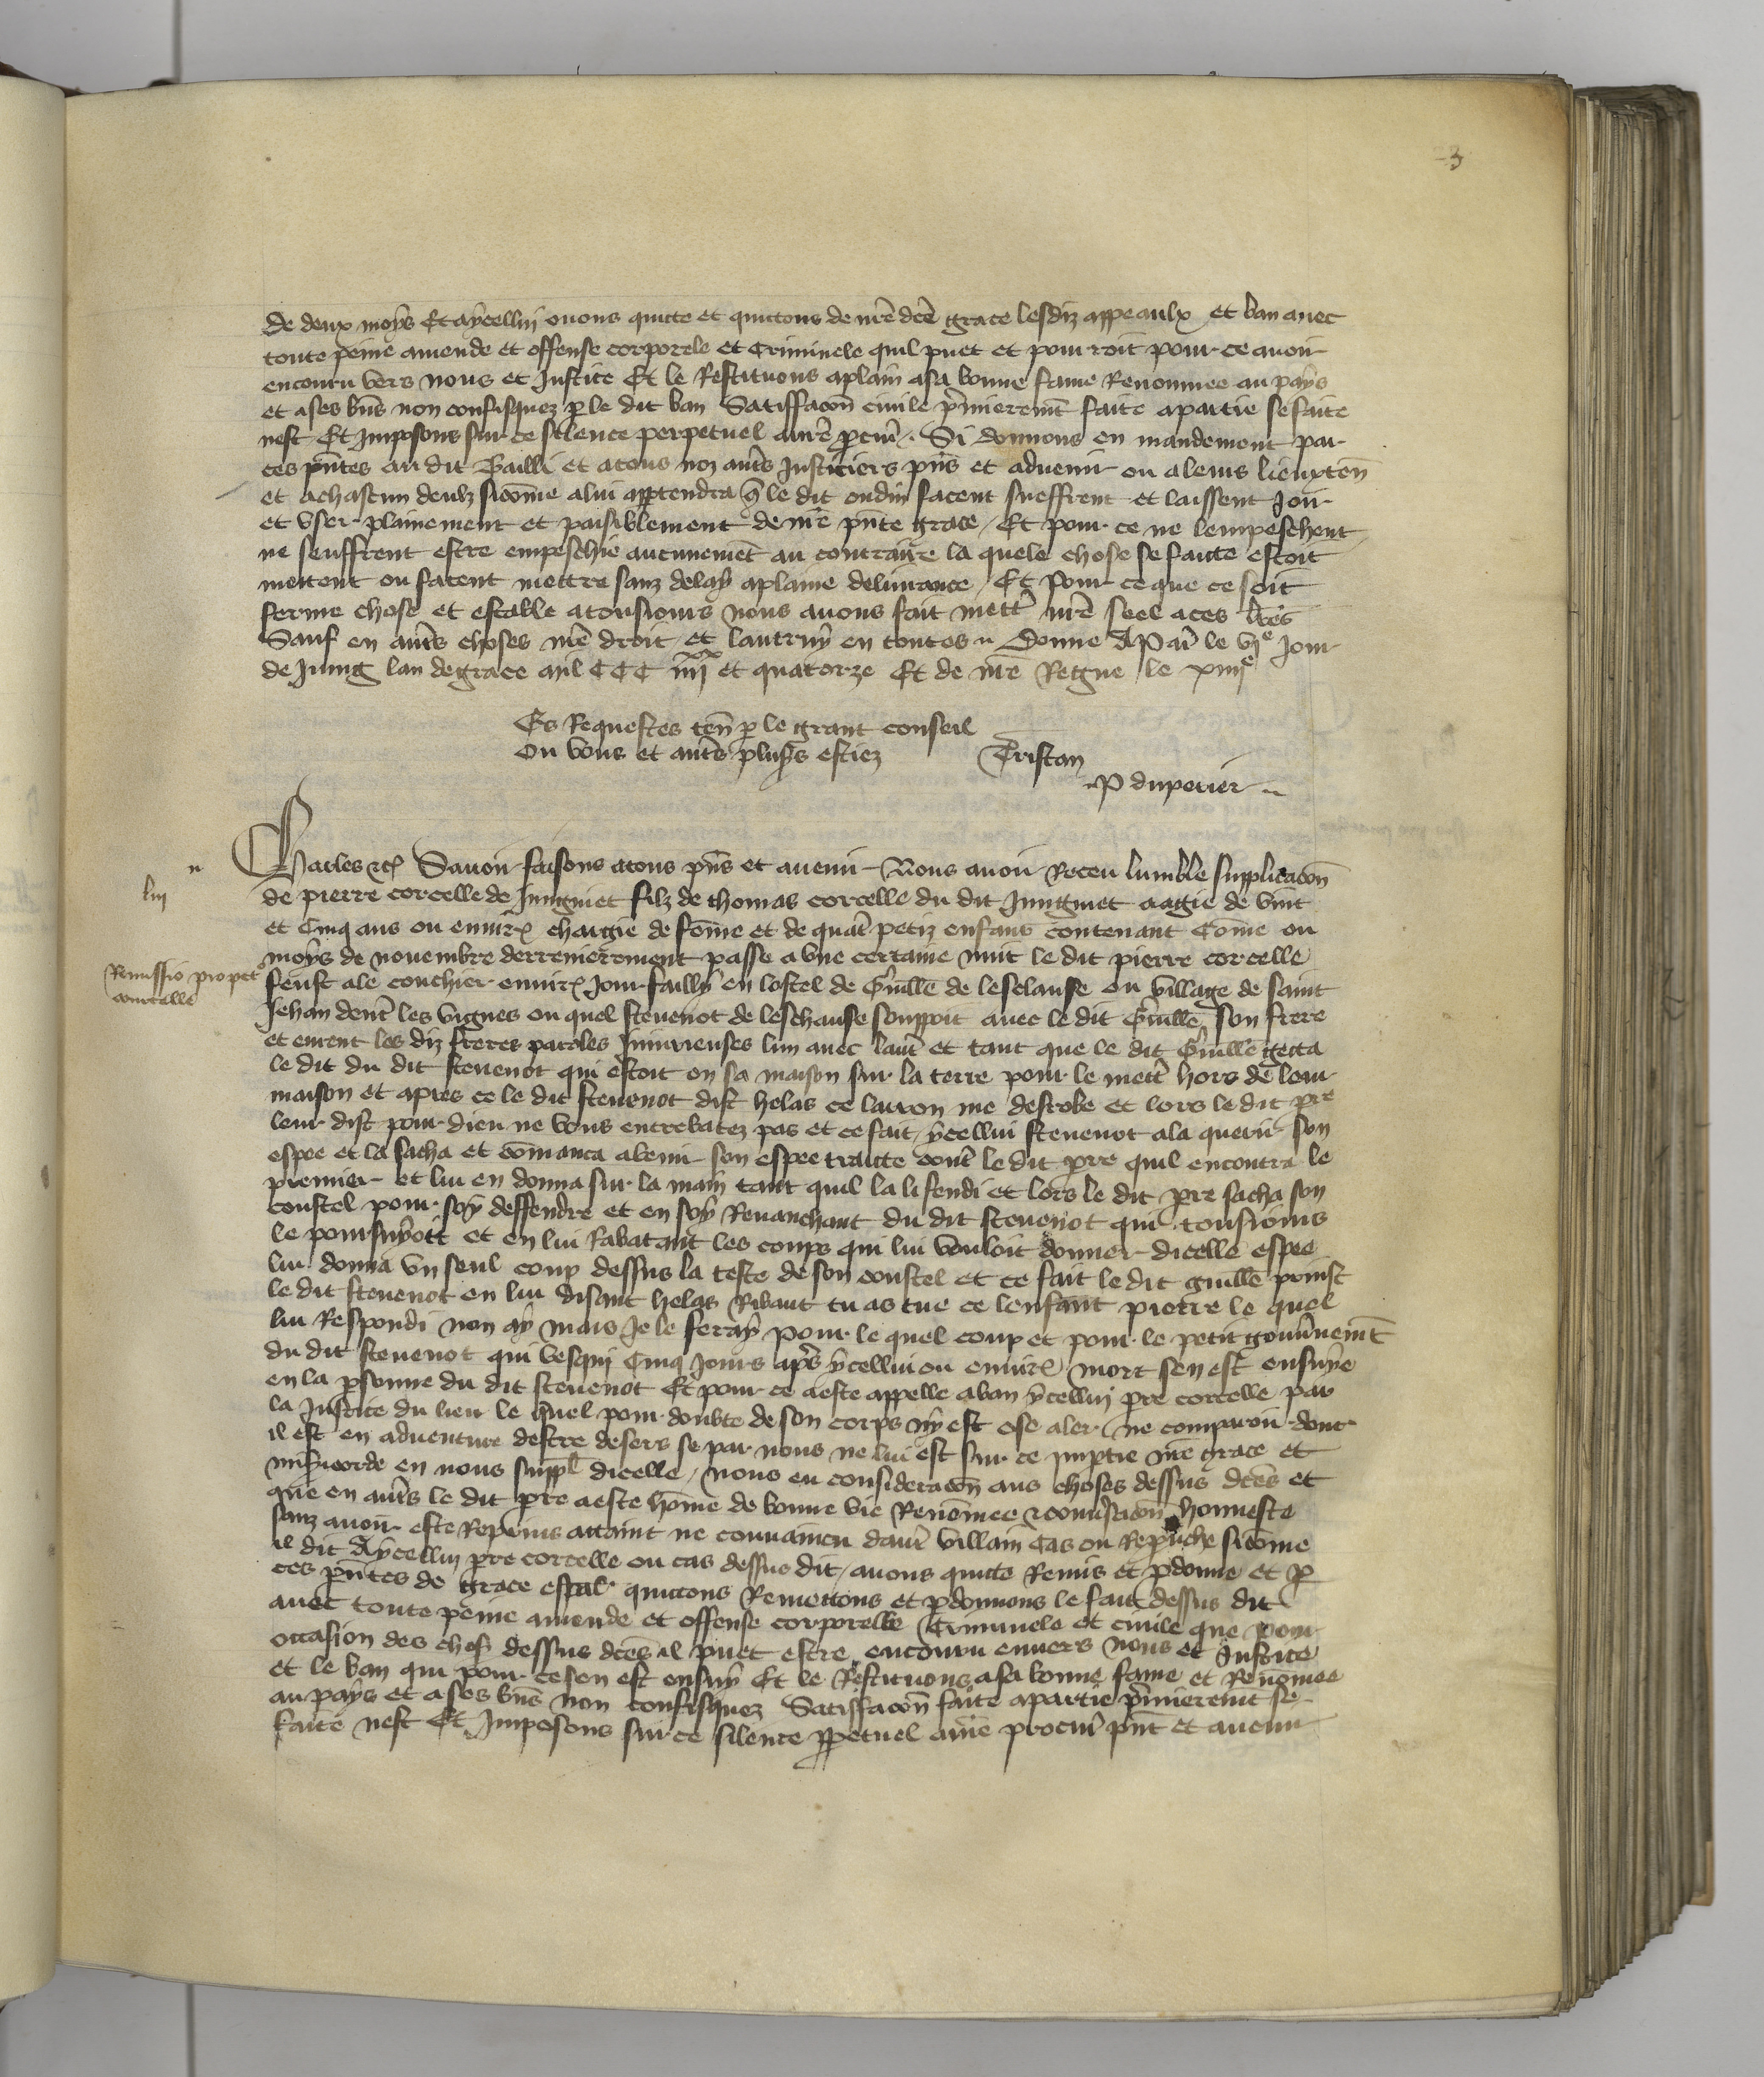 3
de deux moys Et aycelluy avons quicte et quictons de nr̄e dc̄e grace lesdiz appeaulx et ban avec
toute peine amende et offense corporele et Criminele quil puet et pourroit pour ce avoir
encouru vers nous et Justice Et le Restituons aplain asa bonne fame Renommee au pays
et ases bn̄s non confisquez p le dit ban Satiffacōn civile p̄mieremt̄ faite apartie se faite
nest Et Imposons sur ce silence perpetuel anr̄e pcur̄. Si donnons en mandement par
ces pn̄tes au dit Bailli et atous noz aut̄s Justiciers pn̄s et advenir ou aleurs lieuxten̄
et achascun deulx sicōme alui apptendra q̄ le dit oudin facent sueffrent et laissent Joir
et user plainement et paisiblement de nr̄e pn̄te grace / Et pour ce ne lempeschent
ne seuffrent estre empeschie aucunemēt au contraire la quele chose se faicte estoit
mettent ou facent mettre sanz delay aplaine delivrance / Et Pour ce que ce soit
ferme chose et estable atousiours nous avons fait mettr̄ nr̄e seel aces lr̄es
Sauf en aut̄s choses nr̄e droit et lautruy en toutes Donne A Par̄ le vjᵉ Jour
de Juing lan de grace mil CCC iiijˣˣ et quatorze Et de nr̄e Regne le xiiijᵉ
Es Requestes ten̄ p le grant conseil
Ou vous et aut̄s plus̄s estiez Tristan
P duperier
Charles etc̄ Savoir faisons atous pn̄s et avenir Nous avoir Receu lumble supplicacōn
liij
de pierre corcelle de Juingniet filz de thomas corcelle du dit Juingniet aagie de vint
et Cinq ans ou envir̄ chargie de fōme et de quat̄ petiz enfans contenant Cōme ou
moys de novembre derrenierement passe a une certaine nuit le dit pierre corcelle
Remissio pro pet°
courcelle
feust ale couchier envir̄ Jour failly en lostel de Guill̄e de lesclause ou village de saint
Jehan den̄t les vignes ou quel stevenot de leschause souppoit avec le dit Guill̄e son frere
et eurent les diz freres paroles Iniurieuses lun avec laut̄ et tant que le dit Guill̄e getta
le dit du dit stevenot qui estoit en sa maison sur la terre pour le mett̄ hors de leur
maison et apres ce le dit stevenot dist helas ce larron me desrobe et lors le dit pr̄e
leur dist pour dieu ne vous entrebatez pas et ce fait ycellui stevenot ala querir son
espee et la sacha et cōmanca avenir son espee traicte cont̄ le dit pr̄e quil encontra le
premier et lui en donna sur la main tant quil la li fendi et lors le dit pr̄e sacha son
coustel pour soy deffendre et en soy Revanchant du dit stevenot qui tousiours
le poursuyoit et en lui Rabatant les coups qui lui vouloit donner dicelle espee
lui donna un seul coup dessus la teste de son coustel et ce fait le dit guill̄e prinst
le dit stevenot en lui disant helas Ribaut tu as tue ce lenfant pierre le quel
lui Respondi non ay mais Je le feray pour le quel coup et pour le petit gouv̄nemt̄
du dit stevenot qui vesqui Cinq Jours ap̄s ycellui ou envir̄ mort sen est ensuye
en la psonne du dit stevenot Et pour ce aeste appelle aban ycelluy pr̄e corcelle par
la Justice du lieu le quel pour doubte de son corps ny est ose aler ne comparoir dont
il est en adventure destre desers se par nous ne lui est sur ce imp̄tie nr̄e grace et
misicorde en nous supp̄l dicelle / nous eu consideracōn aus choses dessus dc̄es et
que en aut̄s le dit pr̄e aeste hōme de bonne vie Renōmee 2 conv̄sacōn honneste
sanz avoir este Reprins attaint ne convaincu daut̄ villain Cas ou Reprouche sicōme
il dit Aycelluy pr̄e corcelle ou cas dessus dit / avons quicte Remis et pdonne et p
ces pn̄tes de grace esp̄al quictons Remettons et pdonnons le fait dessus dit
avec toute peine amende et offense corporelle Criminele et civile que pour
occasion des chos̄ dessus dc̄es il puet estre encouru envers nous et Justice
et le ban qui pour ce sen est ensuy Et le Restituons asa bonne fame et Renōmee
au pays et ases bn̄s non confisquez Satiffacōn faite apartie p̄mieremt se
faite nest Et Imposons sur ce silence ppetuel anr̄e procur̄ pn̄t et avenir